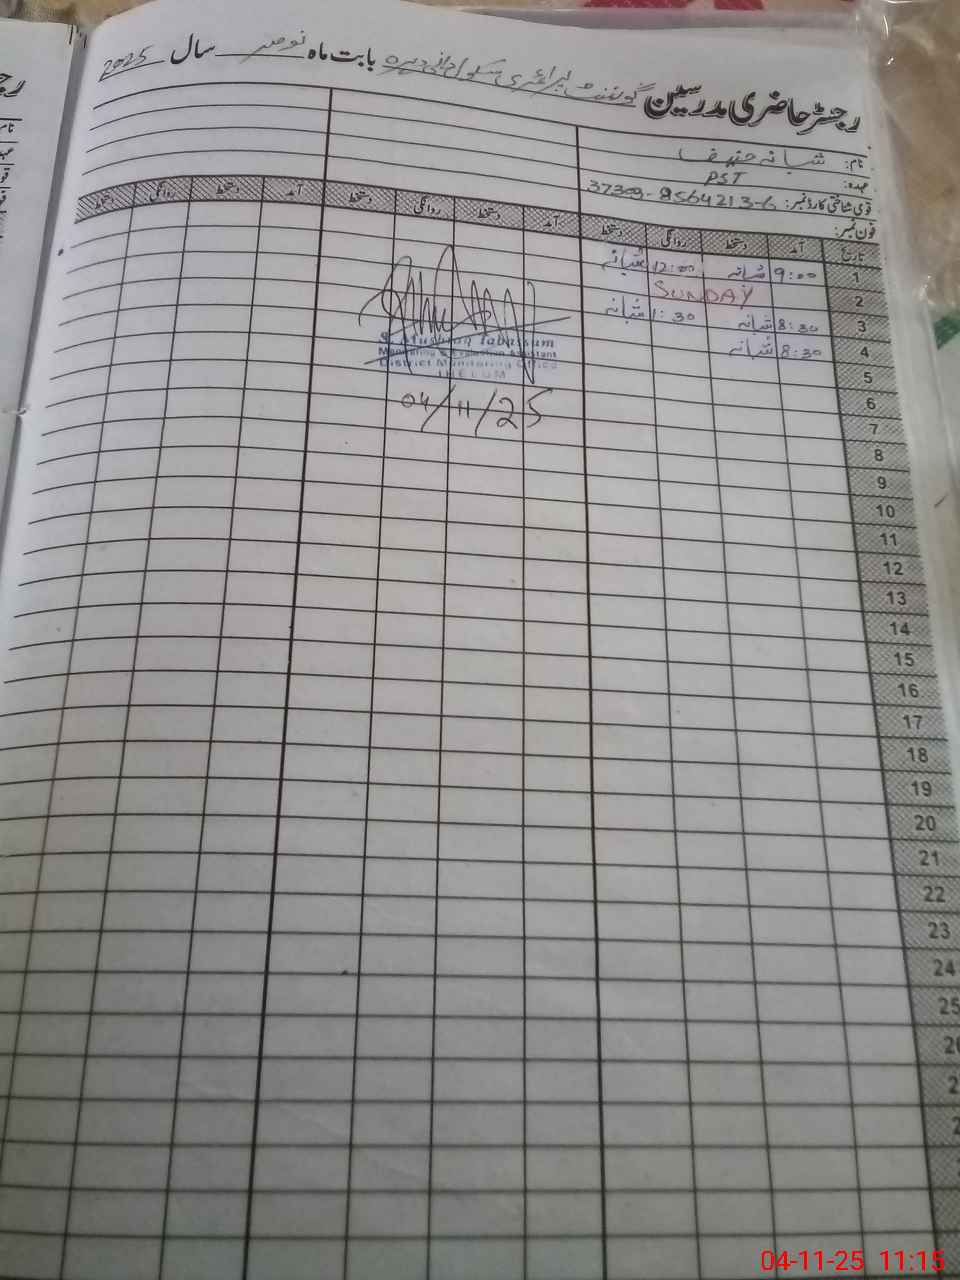 رجسٹر حاضری مدرسین گورنمنٹ پرائمری سکول بابت ماہ نومبر سال 2025
نام: شبانہ حنیف
عہدہ: PST
قومی شناختی کارڈ نمبر: 37303-8564213-6
فون نمبر:
تاریخ آمد دستخط روانگی دستخط آمد دستخط روانگی دستخط آمد دستخط روانگی دستخط
1 9:00 شبانہ 12:00 شبانہ
2 SUNDAY
3 8:30 شبانہ 1:30 شبانہ
4 8:30 شبانہ
Tabassum
Monitoring & Evaluation Assistant
District Monitoring Office
JHELUM
04/11/25
5
6
7
8
9
10
11
12
13
14
15
16
17
18
19
20
21
22
23
24
25
04-11-25 11:15